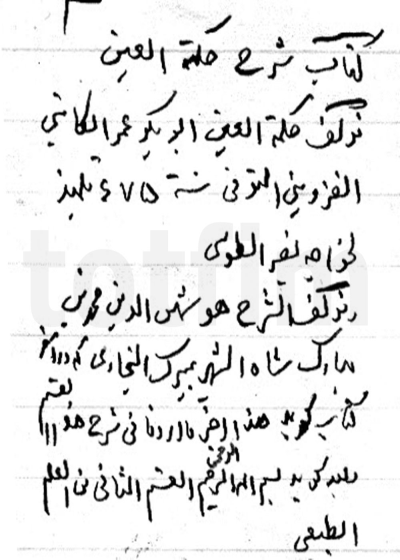 كتاب شرح حكمة العين
مؤلف حكمة العين ابو بكر عمر الكاتبي
القزويني المتوفى سنة ٦٧٥ تلميذ
خواجه نصر الطوسى
ومؤلف الشرح هو شمس الدين محمد بن
مبارك شاه الشهير بميرك البخارى كه در
كتاب گويد هذا آخر ما اوردنا فى شرح هذا القسم
وبعد گويد بسم الله الرحمن الرحيم القسم الثانى فى العلم
الطبيعى